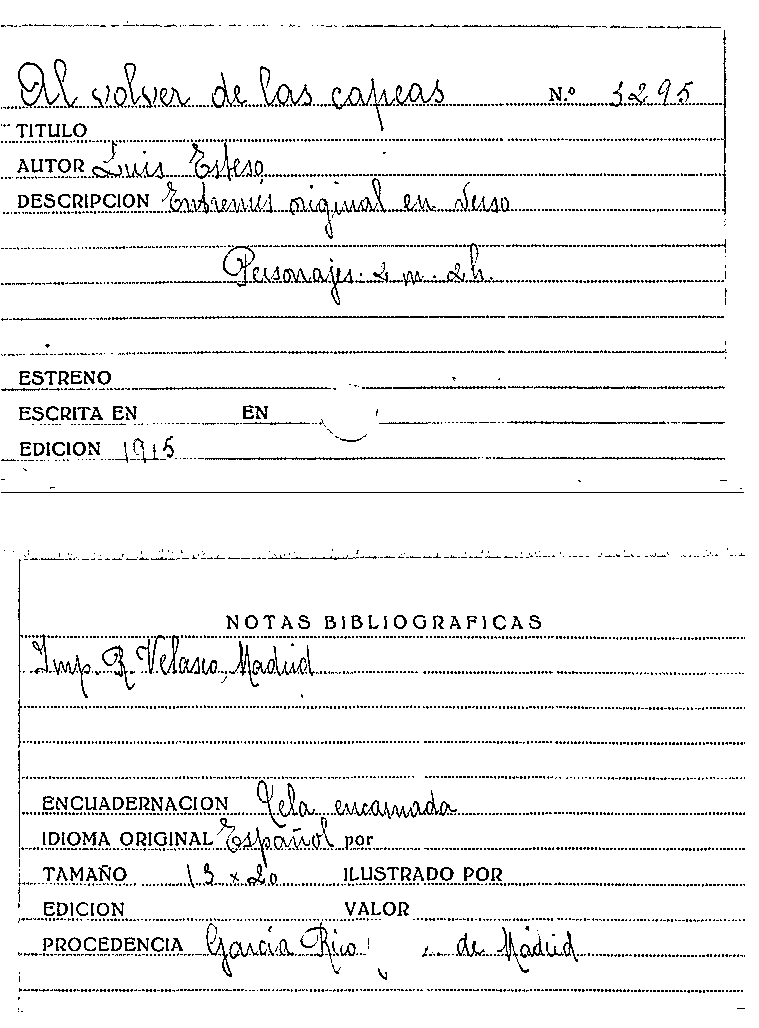 Al volver de las capeas N.º 3295
TITULO
AUTOR Luis Esteso
DESCRIPCION Entremés original en verso
Personajes: 2 m. 2 h.
ESTRENO
ESCRITA EN EN
EDICION 1915
NOTAS BIBLIOGRAFICAS
Imp. R. Velasco, Madrid
ENCUADERNACION Tela encarnada
IDIOMA ORIGINAL Español por
TAMAÑO 13 x 20 ILUSTRADO POR
EDICION VALOR
PROCEDENCIA García Rico de Madrid